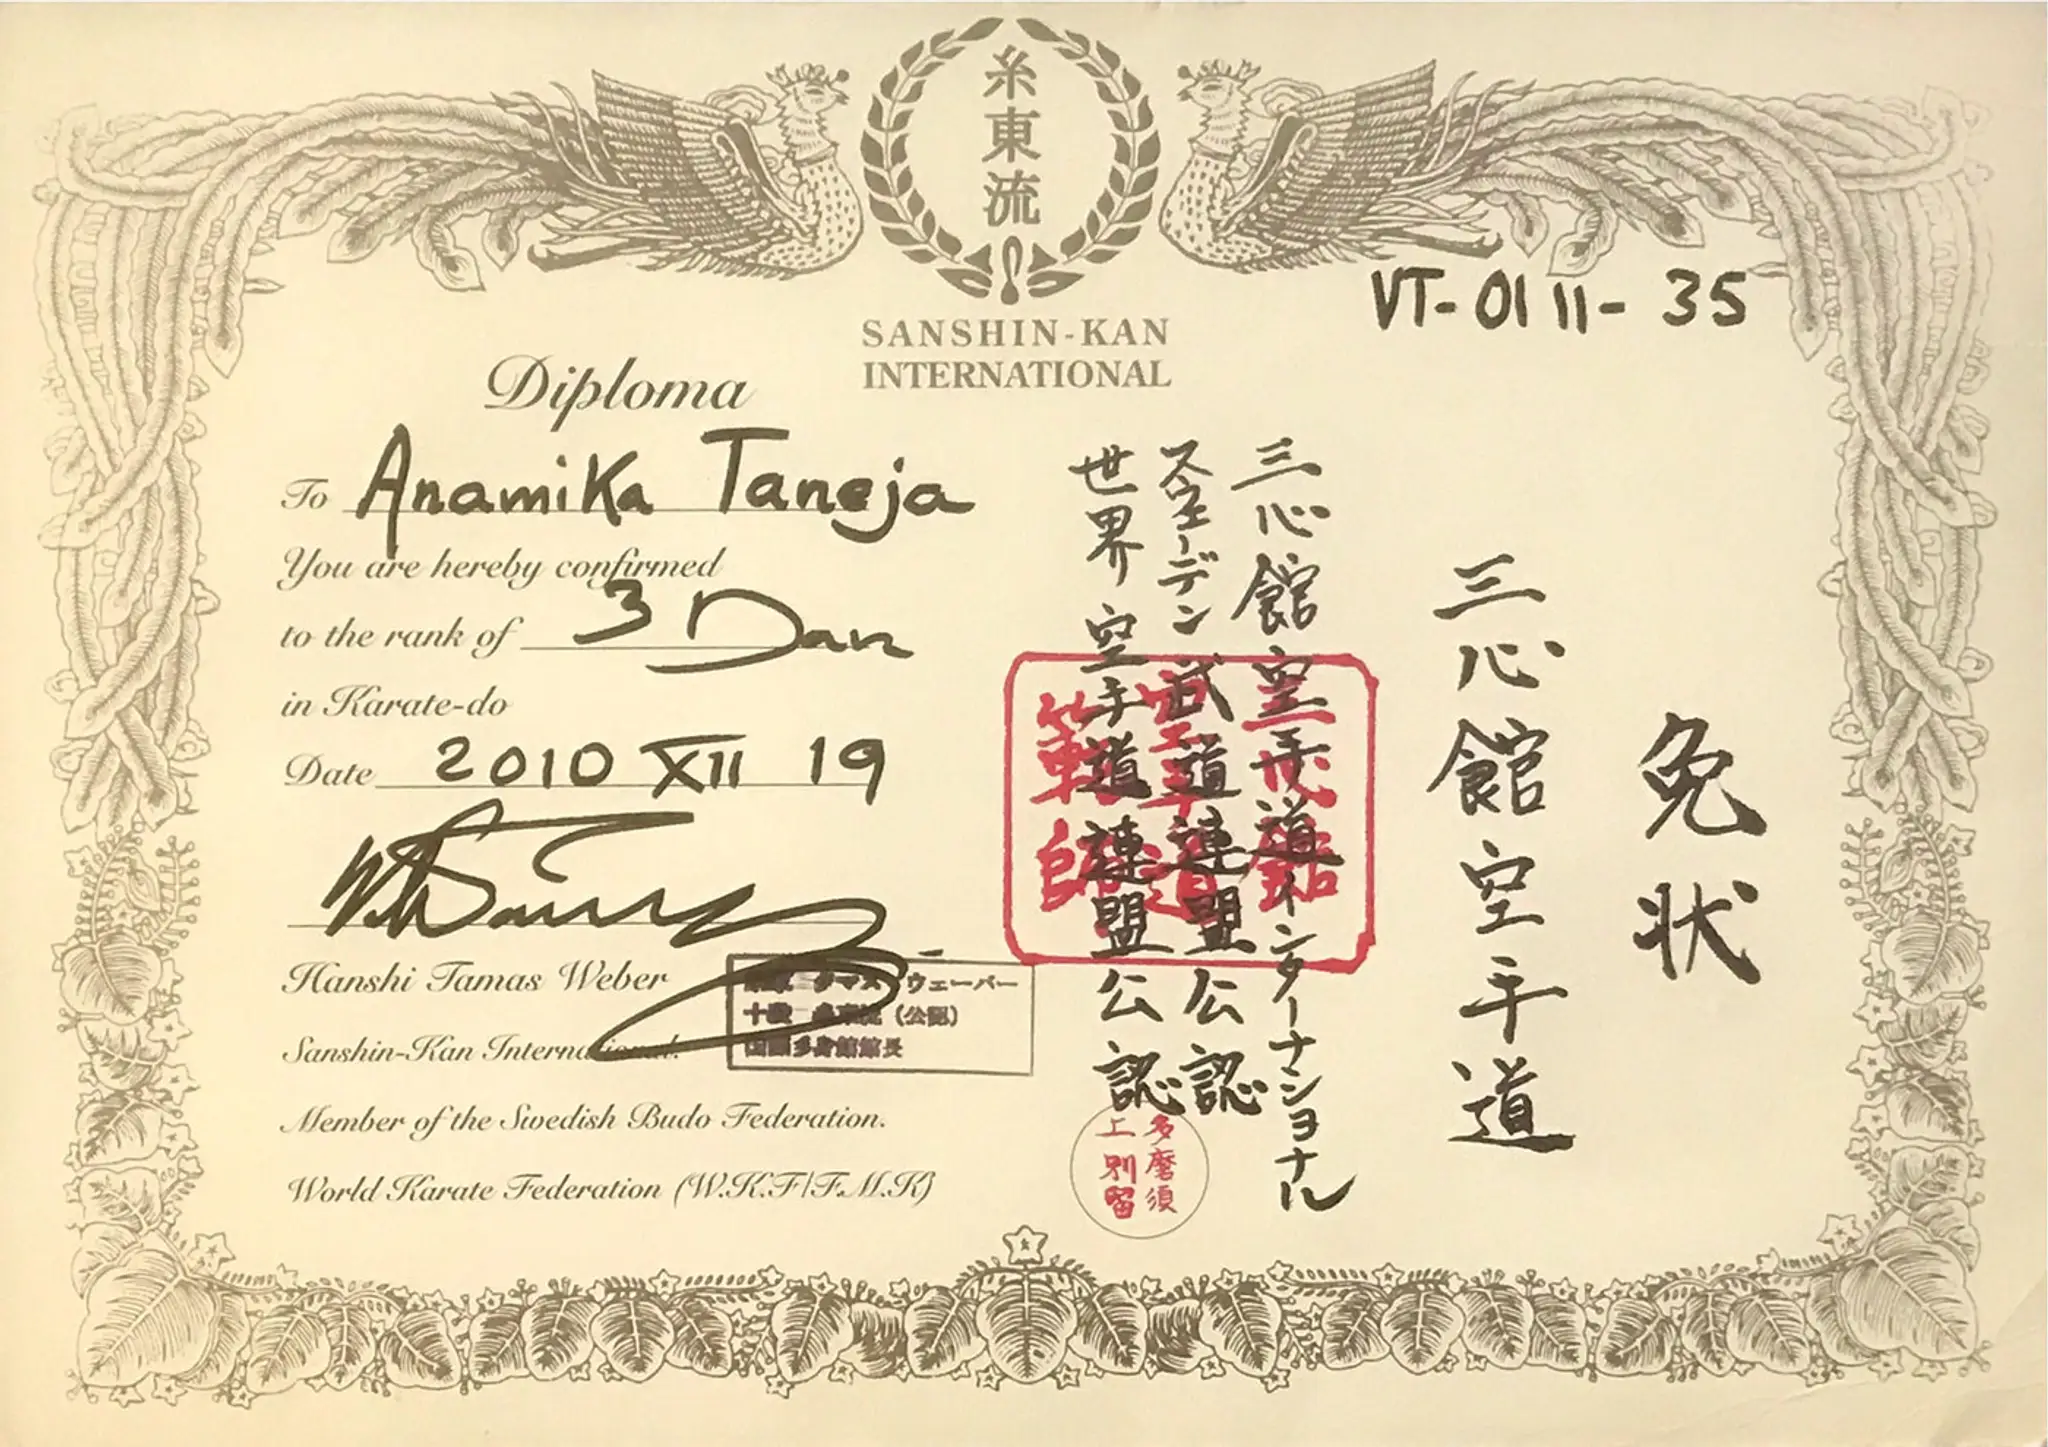 糸東流
SANSHIN-KAN
INTERNATIONAL
VT-0111-35
Diploma
To Anamika Taneja
You are hereby confirmed
to the rank of 3 Dan
in Karate-do
Date 2010 XII 19
Hanshi Tamas Weber
Sanshin-Kan International.
Member of the Swedish Budo Federation.
World Karate Federation (W.K.F/F.M.K)
免状
三心館空手道
三心館空手道インターナショナル
スウェーデン武道連盟公認
世界空手道連盟公認
タマス ウェーバー
十段 糸東流 (公認)
館長
多磨須
上別留